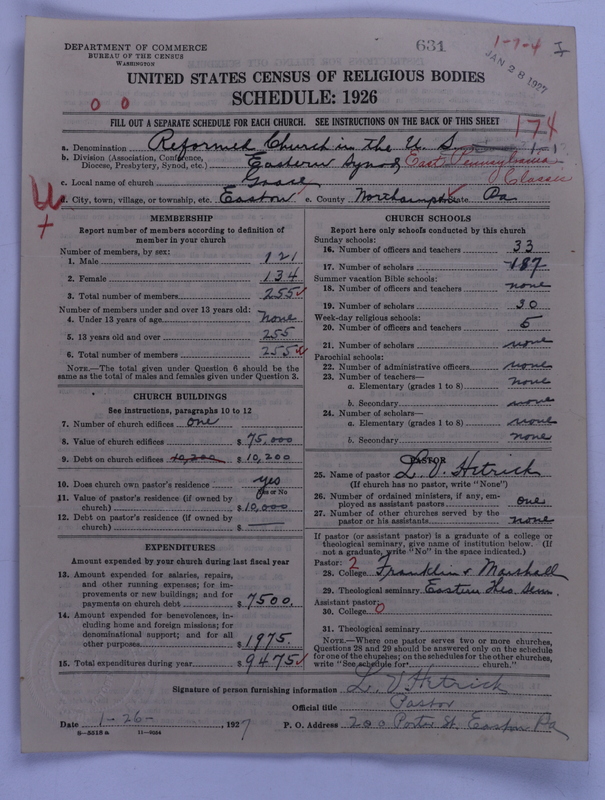 631
1-7-4
JAN 28 1927
DEPARTMENT OF COMMERCE
BUREAU OF THE CENSUS
WASHINGTON
UNITED STATES CENSUS OF RELIGIOUS BODIES
SCHEDULE: 1926
0 0
FILL OUT A SEPARATE SCHEDULE FOR EACH CHURCH. SEE INSTRUCTIONS ON THE BACK OF THIS SHEET
174
a. Denomination Reformed Church in the U. S. 1-1
b. Division (Association, Conference, Diocese, Presbytery, Synod, etc.) Eastern Synod, East Pennsylvania Classis
c. Local name of church Grace
d. City, town, village, or township, etc. Easton e. County Northampton State Pa
MEMBERSHIP
Report number of members according to definition of member in your church
Number of members, by sex:
1. Male 121
2. Female 134
3. Total number of members 255
Number of members under and over 13 years old:
4. Under 13 years of age None
5. 13 years old and over 255
6. Total number of members 255
NOTE.—The total given under Question 6 should be the same as the total of males and females given under Question 3.
CHURCH BUILDINGS
See instructions, paragraphs 10 to 12
7. Number of church edifices one
8. Value of church edifices $ 75,000
9. Debt on church edifices 10,200 $ 10,200
10. Does church own pastor's residence? yes
Yes or No
11. Value of pastor's residence (if owned by church) $ 10,000
12. Debt on pastor's residence (if owned by church) $
EXPENDITURES
Amount expended by your church during last fiscal year
13. Amount expended for salaries, repairs, and other running expenses; for improvements or new buildings; and for payments on church debt $ 7500.
14. Amount expended for benevolences, including home and foreign missions; for denominational support; and for all other purposes $ 1975
15. Total expenditures during year $ 9475
CHURCH SCHOOLS
Report here only schools conducted by this church
Sunday schools:
16. Number of officers and teachers 33
17. Number of scholars 187
Summer vacation Bible schools:
18. Number of officers and teachers none
19. Number of scholars 30
Week-day religious schools:
20. Number of officers and teachers 5
21. Number of scholars none
Parochial schools:
22. Number of administrative officers none
23. Number of teachers—
a. Elementary (grades 1 to 8) none
b. Secondary none
24. Number of scholars—
a. Elementary (grades 1 to 8) none
b. Secondary none
PASTOR
25. Name of pastor L. V. Hetrick
(If church has no pastor, write "None")
26. Number of ordained ministers, if any, employed as assistant pastors one
27. Number of other churches served by the pastor or his assistants none
If pastor (or assistant pastor) is a graduate of a college or theological seminary, give name of institution below. (If not a graduate, write "No" in the space indicated.)
Pastor: 2
28. College Franklin & Marshall
29. Theological seminary Eastern Theo. Sem.
Assistant pastor:
30. College 0
31. Theological seminary
NOTE.—Where one pastor serves two or more churches, Questions 28 and 29 should be answered only on the schedule for one of the churches; on the schedules for the other churches, write "See schedule for church."
Signature of person furnishing information L. V. Hetrick
Official title Pastor
Date 1-26-, 1927 P. O. Address 200 Porter St. Easton Pa
8-5518 a 11-9034